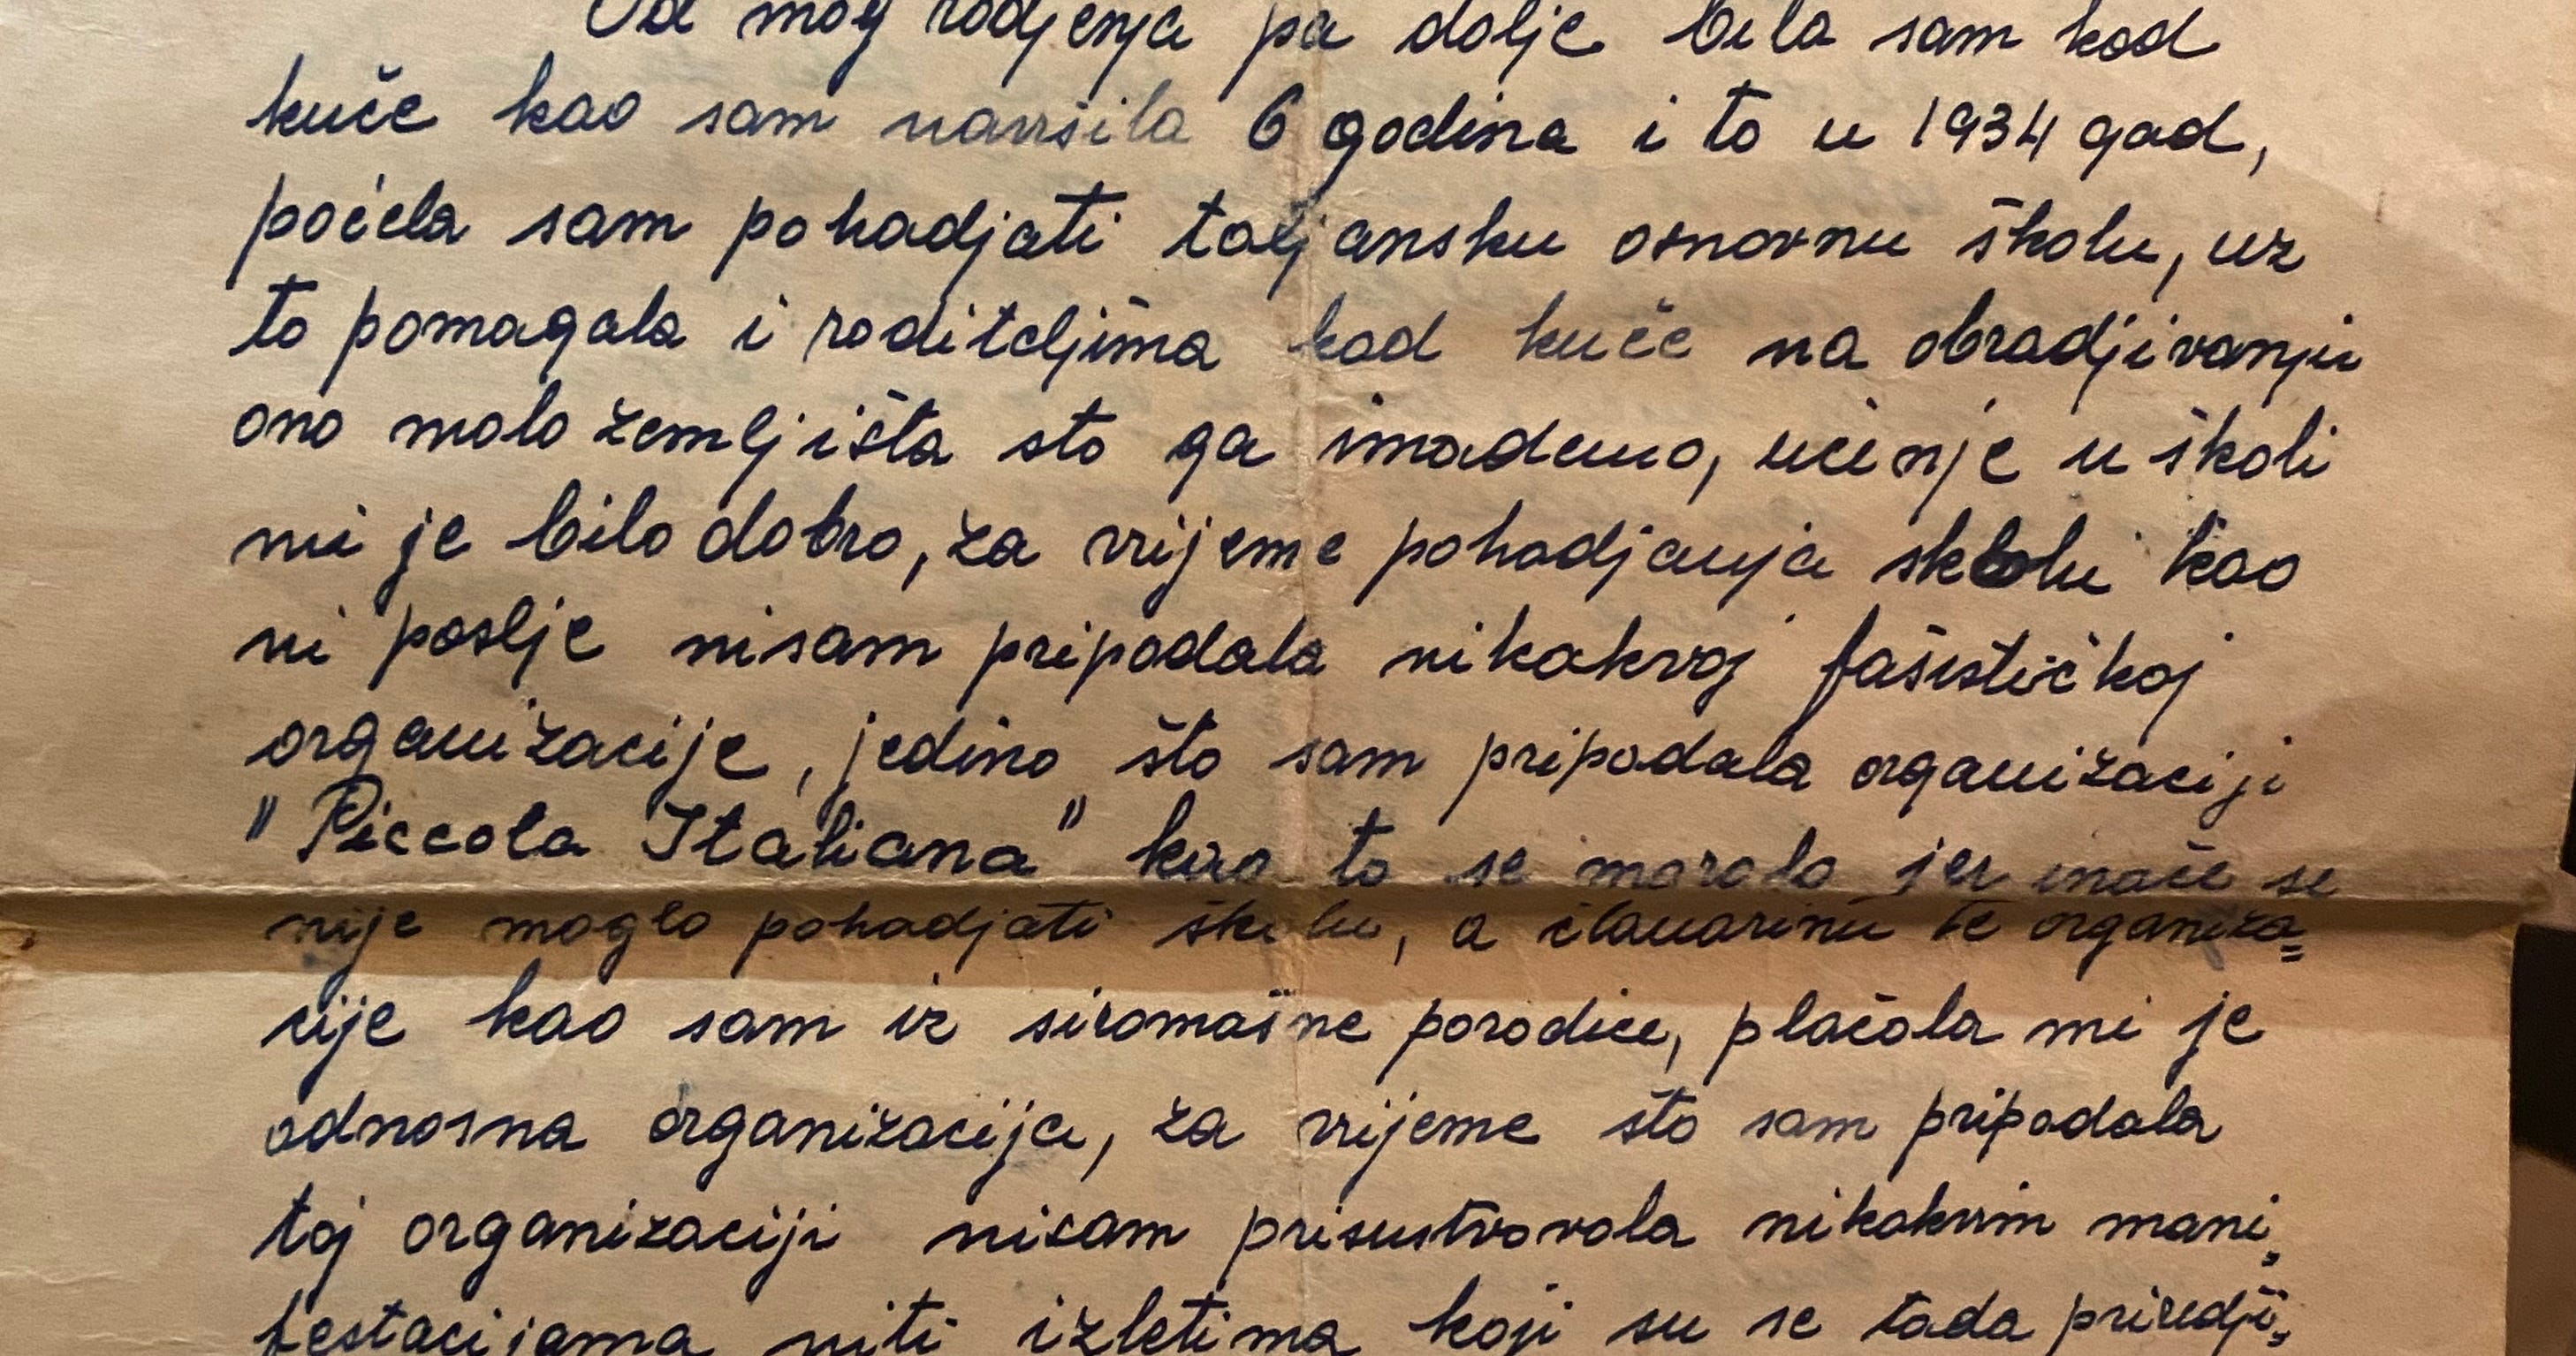 Od mog rodjenja pa dolje bila sam kod
kuče kao sam navršila 6 godina i to u 1934 god,
počela sam pohadjati taljansku osnovnu školu, uz
to pomagala i roditeljima kod kuče na obradjivanju
ono malo zemljišta sto ga imademo, učenje u školi
mi je bilo dobro, za vrijeme pohadjanja skolu kao
ni poslje nisam pripadala nikakvoj fašističkoj
organizacije, jedino što sam pripadala organizaciji
"Piccola Italiana" kao to se moralo jer inače se
nije moglo pohadjati školu, a članarinu te organiza=
cije kao sam iz siromašne porodice, plačala mi je
odnosna organizacija, za vrijeme što sam pripadala
toj organizaciji nisam prisustvovala nikakvim mani=
festacijama niti izletima koji su se tada priredji=